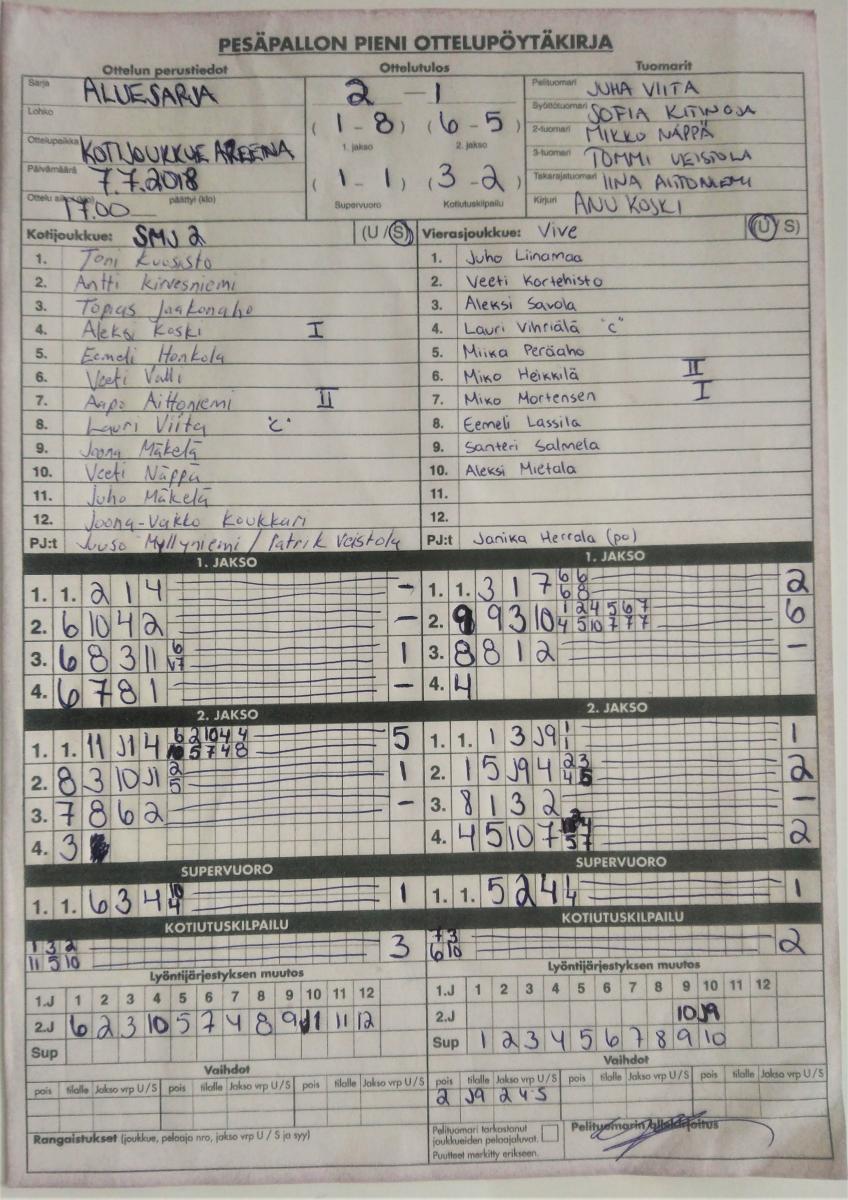 PESÄPALLON PIENI OTTELUPÖYTÄKIRJA
Ottelun perustiedot
Sarja ALUESARJA
Lohko
Ottelupaikka KOTIJOUKKUE AREENA
Päivämäärä 7.7.2018
Ottelu alkoi (klo) 17.00 päättyi (klo)
Ottelutulos
2 – 1
(1 - 8) (6 - 5)
1. jakso 2. jakso
(1 - 1) (3 - 2)
Supervuoro Kotiutuskilpailu
Tuomarit
Pelituomari JUHA VIITA
Syöttötuomari SOFIA KITINOJA
2-tuomari MIKKO NÄPPÄ
3-tuomari TOMMI VEISTOLA
Takarajatuomari IINA AITTONIEMI
Kirjuri ANU KOSKI
Kotijoukkue: SMJ 2 (U / S)
1. Toni Kuosisto
2. Antti Kirvesniemi
3. Topias Jaakonaho
4. Aleksi Koski I
5. Eemeli Honkola
6. Veeti Valli
7. Aapo Aittoniemi II
8. Lauri Viita "C"
9. Joona Mäkelä
10. Veeti Näppä
11. Juho Mäkelä
12. Joona-Vakko Koukkari
PJ:t Juuso Myllyniemi / Patrik Veistola
Vierasjoukkue: Vive (U / S)
1. Juho Liinamaa
2. Veeti Kortehisto
3. Aleksi Savola
4. Lauri Vihriälä "C"
5. Miika Peräaho
6. Miko Heikkilä II
7. Miko Mortensen I
8. Eemeli Lassila
9. Santeri Salmela
10. Aleksi Mietala
11.
12.
PJ:t Janika Herrala (po)
1. JAKSO
1. 1. 2 1 4 –
2. 6 10 4 2 –
3. 6 8 3 11 6 1
4. 6 7 8 1 –
1. JAKSO
1. 1. 3 1 7 6 6 2
6 8
2. 9 9 3 10 1 2 4 5 6 7 6
4 5 10 7 7 7
3. 8 8 1 2 –
4. 4
2. JAKSO
1. 1. 11 J1 4 6 2 10 4 4 5
10 5 7 4 8
2. 8 3 10 J1 2 1
5
3. 7 8 6 2 –
4. 3
2. JAKSO
1. 1. 1 3 J9 1 1
1
2. 1 5 J9 4 2 3 2
4 5
3. 8 1 3 2 –
4. 4 5 10 7 4 2
5 7
SUPERVUORO
1. 1. 6 3 4 10 1
4
SUPERVUORO
1. 1. 5 2 4 1 1
4
KOTIUTUSKILPAILU
1 3 2 3
11 5 10
KOTIUTUSKILPAILU
7 3 2
6 10
Lyöntijärjestyksen muutos
1.J 1 2 3 4 5 6 7 8 9 10 11 12
2.J 6 2 3 10 5 7 4 8 9 J1 11 12
Sup
Lyöntijärjestyksen muutos
1.J 1 2 3 4 5 6 7 8 9 10 11 12
2.J 10 J9
Sup 1 2 3 4 5 6 7 8 9 10
Vaihdot
pois tilalle Jakso vrp U / S pois tilalle Jakso vrp U / S pois tilalle Jakso vrp U / S
Vaihdot
pois tilalle Jakso vrp U / S pois tilalle Jakso vrp U / S pois tilalle Jakso vrp U / S
2 J9 2 4 S
Rangaistukset (joukkue, pelaaja nro, jakso vrp U / S ja syy)
Pelituomari tarkastanut
joukkueiden pelaajaluvat.
Puutteet merkitty erikseen.
Pelituomarin allekirjoitus